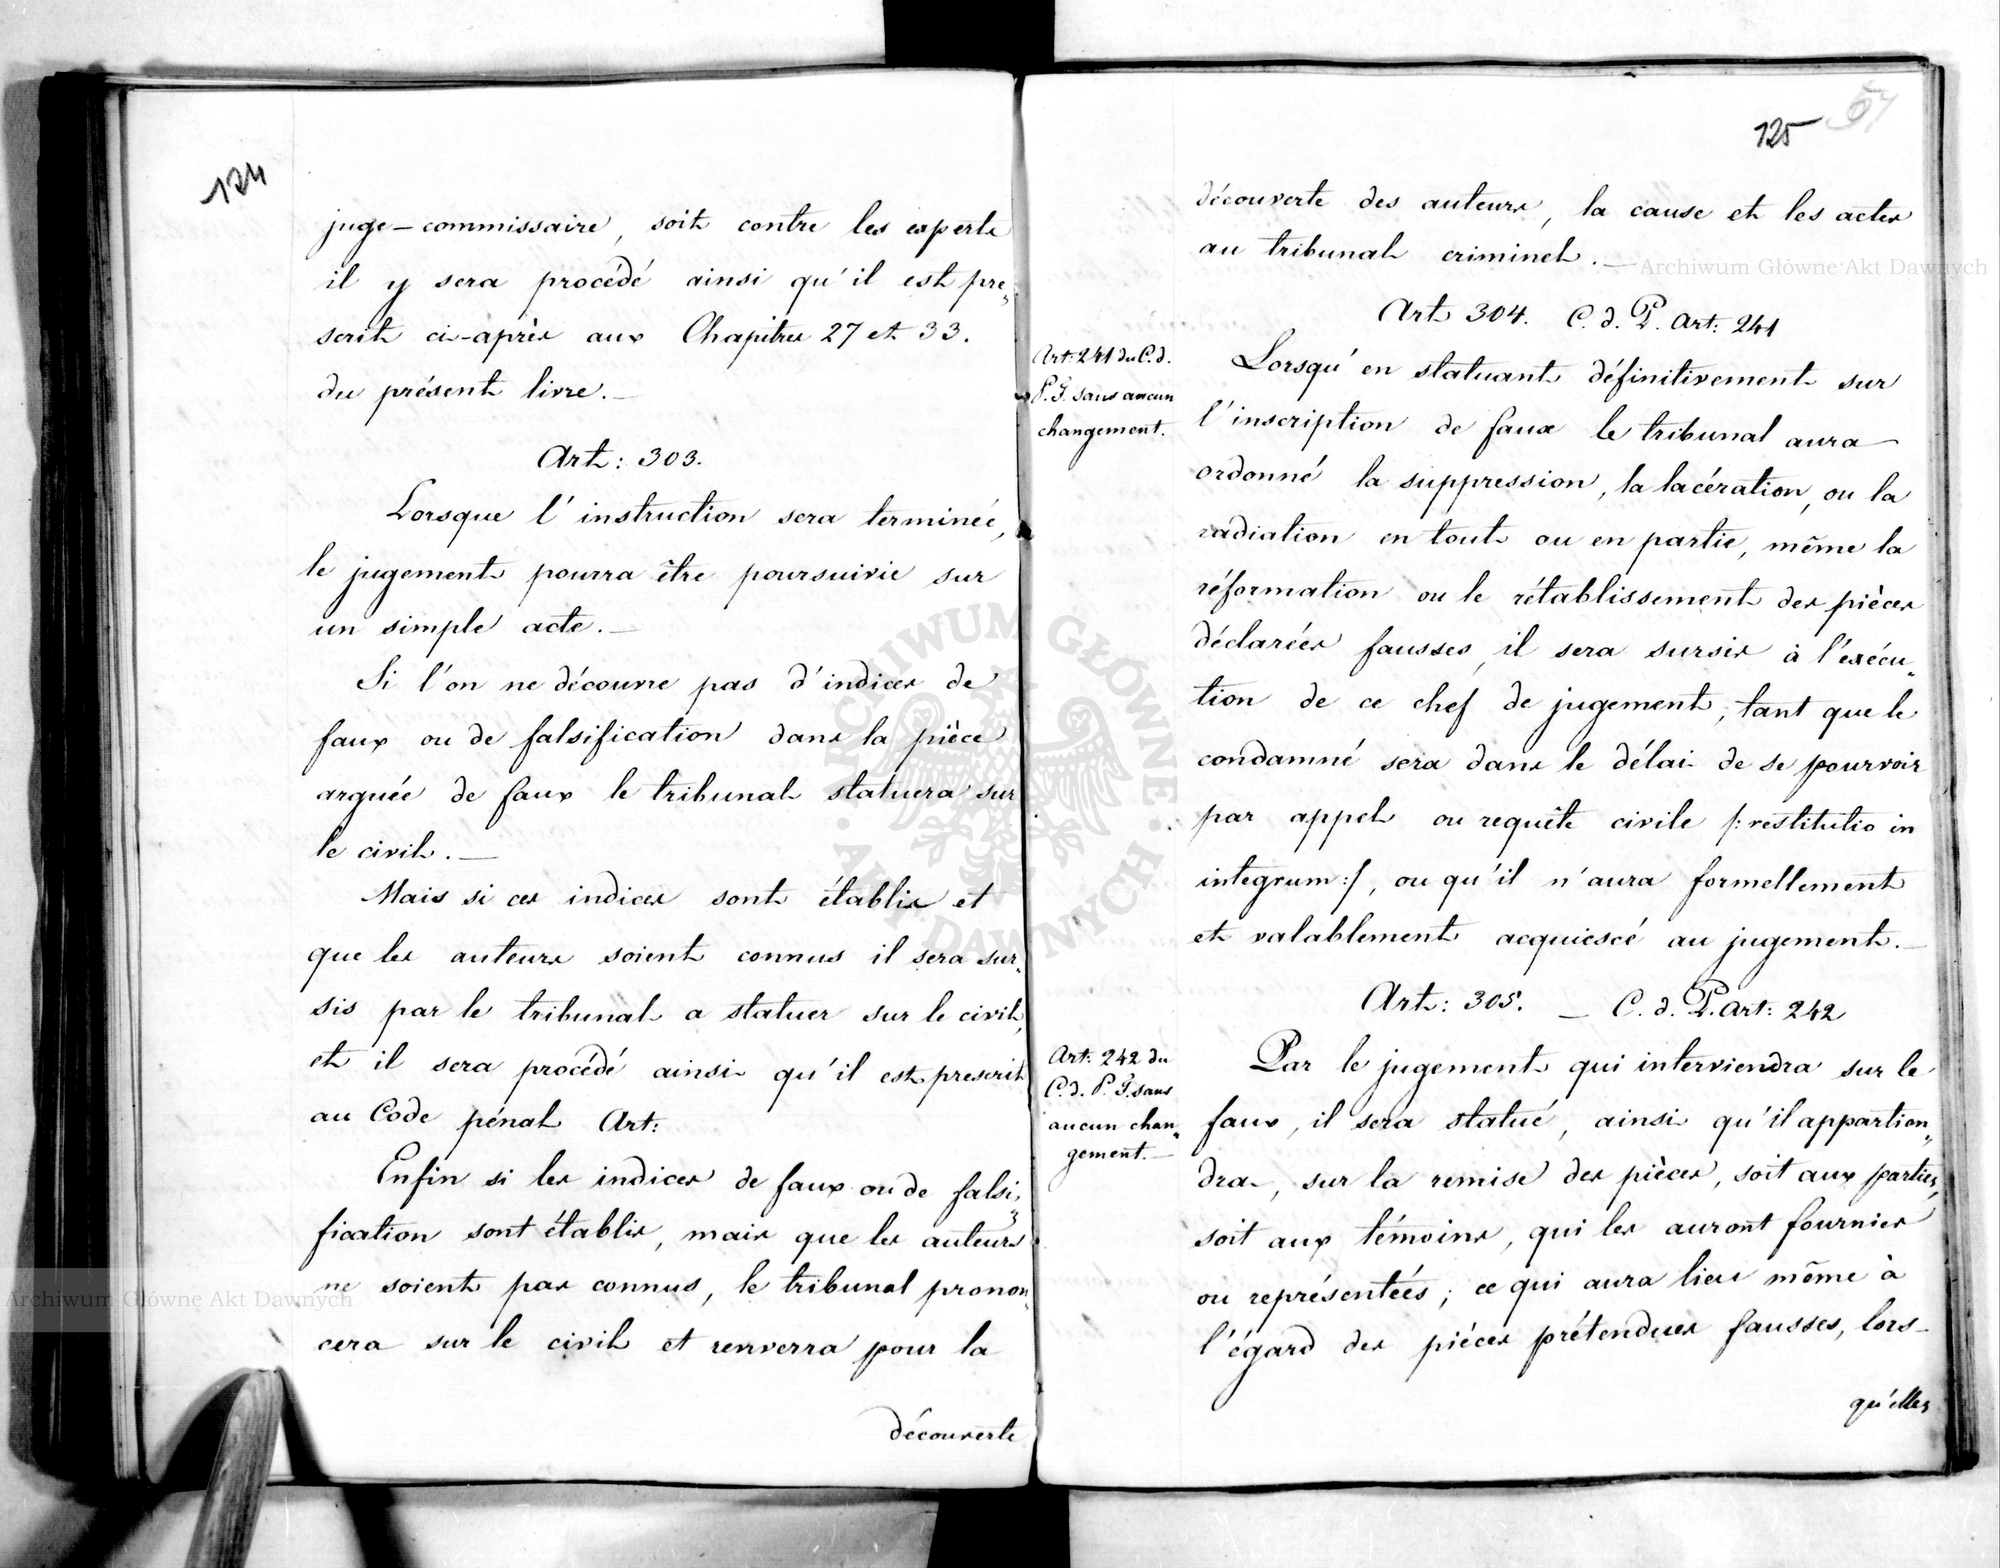 124
juge-commissaire, soit contre les experts
il y sera procédé ainsi qu'il est pre„
scrit ci-après aux Chapitres 27 et 33.
du présent livre.—
Art: 303.
Lorsque l'instruction sera terminée,
le jugement pourra être poursuivie sur
un simple acte.—
Si l'on ne découvre pas d'indices de
faux ou de falsification dans la pièce
arguée de faux le tribunal statuera sur
le civil.—
Mais si ces indices sont établis et
que les auteurs soient connus il sera sur„
sis par le tribunal a statuer sur le civil,
et il sera procédé ainsi qu'il est prescrit
au Code pénal Art:
Enfin si les indices de faux ou de falsi„
fication sont établis, mais que les auteurs
ne soient pas connus, le tribunal pronon„
cera sur le civil et renverra pour la
découverte
125
57
découverte des auteurs, la cause et les actes
au tribunal criminel.—
Art 304. C. d. P. Art: 241
Art: 241 du C. d.
P. F. sans aucun
changement.
Lorsqu'en statuant définitivement sur
l'inscription de faux le tribunal aura
ordonné la suppression, la lacération, ou la
radiation en tout ou en partie, même la
réformation ou le rétablissement des pièces
déclarées fausses, il sera sursis à l'exécu„
tion de ce chef de jugement, tant que le
condamné sera dans le délai de se pourvoir
par appel ou requête civile /: restitutio in
integrum :/, ou qu'il n'aura formellement
et valablement acquiescé au jugement.—
Art: 305. — C. d. P. Art: 242
Art: 242 du
C. d. P. F. sans
aucun chan„
gement.—
Par le jugement qui interviendra sur le
faux, il sera statué, ainsi qu'il appartien„
dra, sur la remise des pièces, soit aux parties,
soit aux témoins, qui les auront fournies
ou représentées; ce qui aura lieu même à
l'égard des pièces prétendues fausses, lors-
qu'elles
Archiwum Główne Akt Dawnych
Archiwum Główne Akt Dawnych
ARCHIWUM GŁÓWNE · AKT DAWNYCH ·